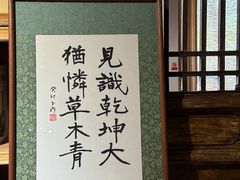 見識乾坤大
猶憐草木青